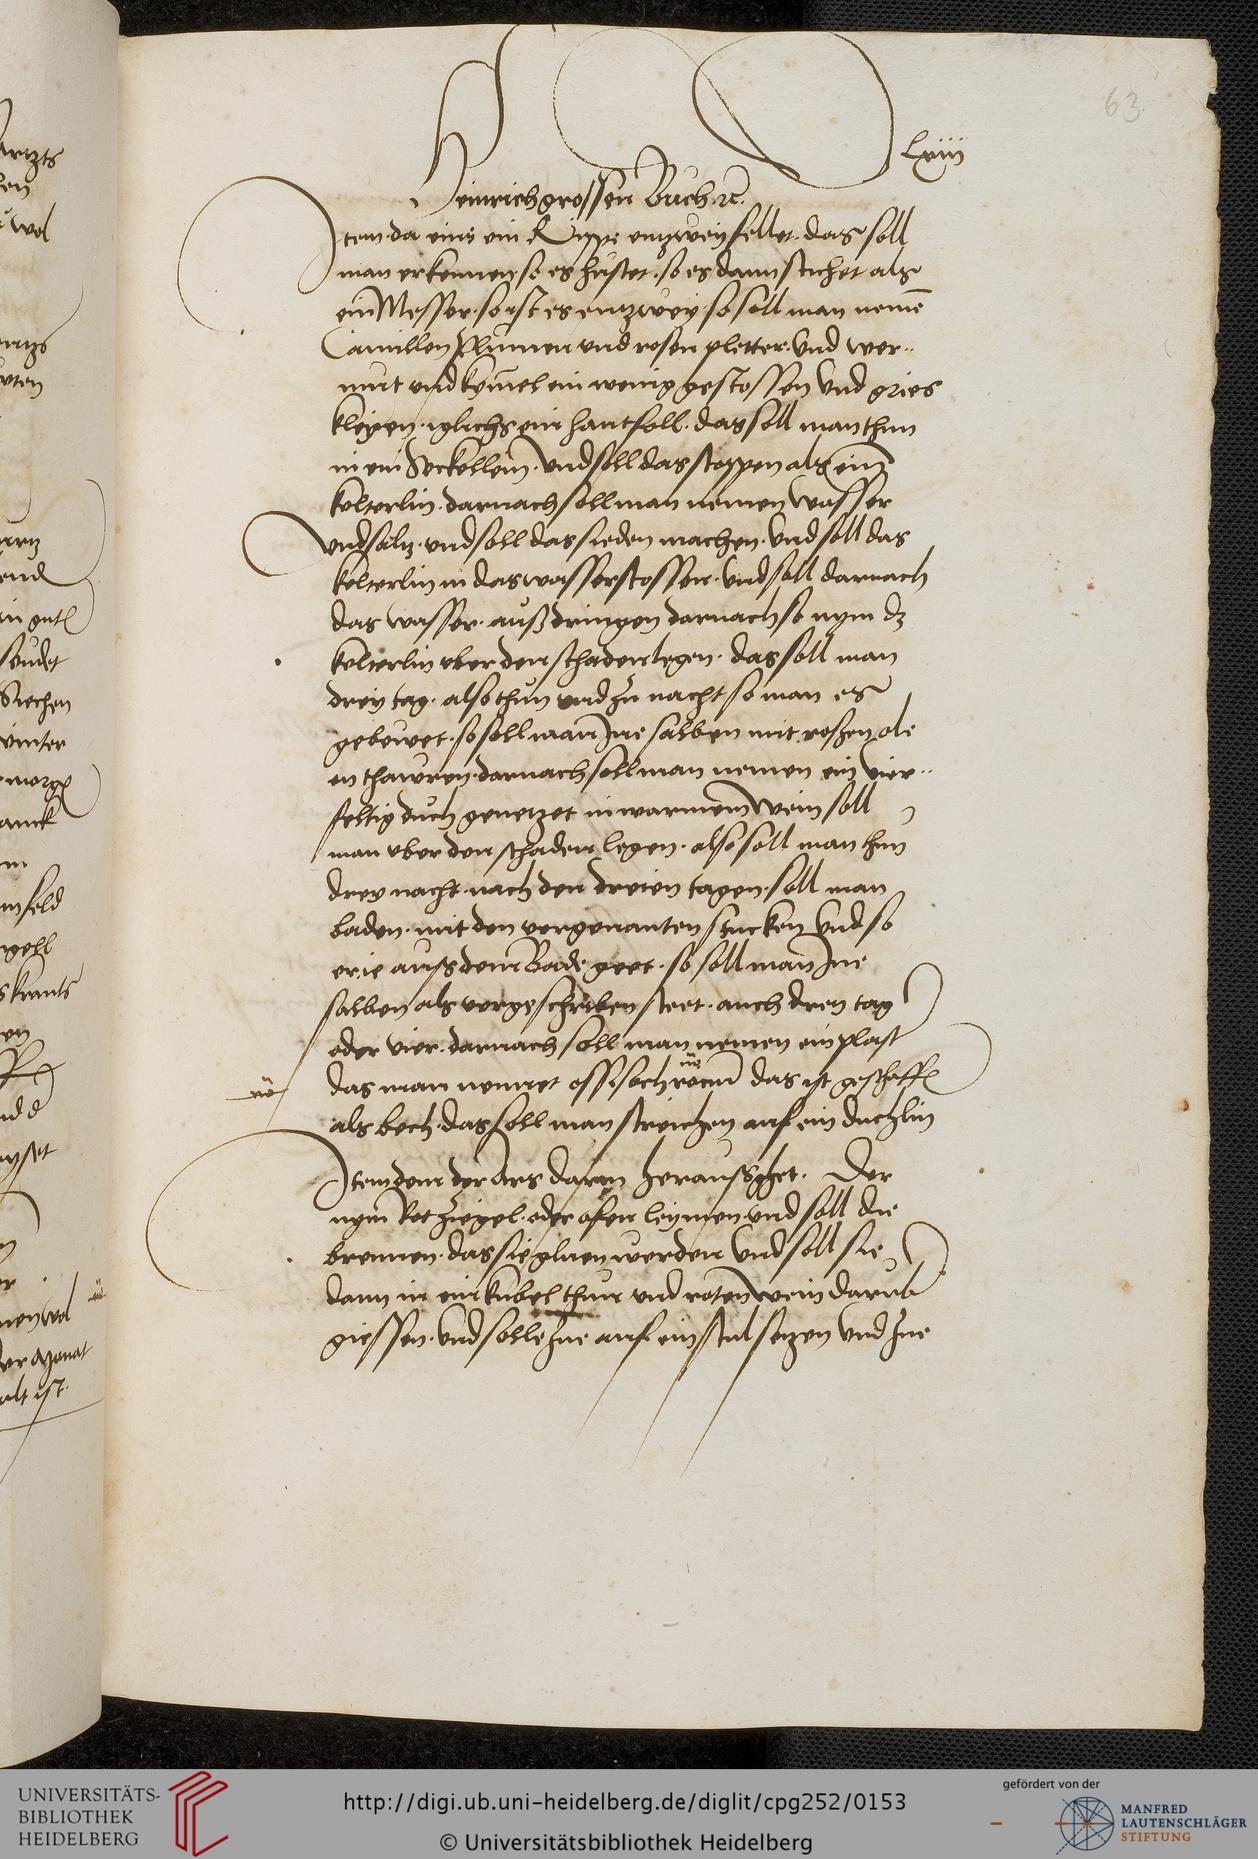 63
Lxiii
Heinrich grossen Buch ꝛc.
Item da eins ein Rippe entzwey fellet. das soll
man erkennen so es hustet. so es dann stichet als
ein Messer. so ist es entzwey. so soll man nemē
Camillen Plumen und rosen pletter. und wer-
mut und kymel ein wenig gestossen und gries
kleyen. iglichs ein hantfoll. das soll man thun
in ein Seckellein. und soll das stoppen als ein
kolterlin. darnach soll man nemen wasser
und saltz. und soll das sieden machen. und soll das
kolterlin in das wasser stossen. und soll darnach
das wasser. außdringen darnach so nym dz
kolterlin uber den schaden legen. das soll man
drey tag. also thun und zu nacht so man es
gebewet. so soll man Ine salben mit roszen ole
en thawren. darnach soll man nemen ein vier-
feltig duch genetzet in warmem Wein soll
man uber den schaden legen. also soll man thun
drey nacht. nach den dreien tagen. soll man
baden. mit den vorgenanten stucken und so
er ie auß dem Bade geet. so soll man Ine
salben als vorgeschriben steet. auch drey tag
oder vier. darnach soll man nemen ein plast
das man nennet das ist geschaffē
als bech. das soll man streichen auf ein duchlin
Item dem der Ars darm heraussghet. Der
nym Rot ziegel. oder ofen leymen und soll die
brennen. das sie gluen werden und soll sie
dann in ein kubel thun und roten Wein darub
giessen. und solle Ine auf ein stul setzen und Ine
UNIVERSITÄTS-
BIBLIOTHEK
HEIDELBERG
http://digi.ub.uni-heidelberg.de/diglit/cpg252/0153
© Universitätsbibliothek Heidelberg
gefördert von der
MANFRED
LAUTENSCHLÄGER
STIFTUNG